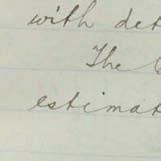 with det
The
estimat